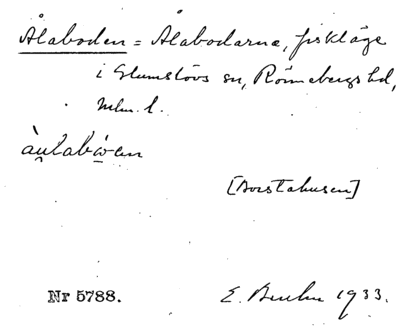 Ålaboden = Ålabodarna, fiskläge
i Glumslövs sn, Rönnebergs hd,
Mlm. l.
[Borstahusen]
Nr 5788.
E. 1933.